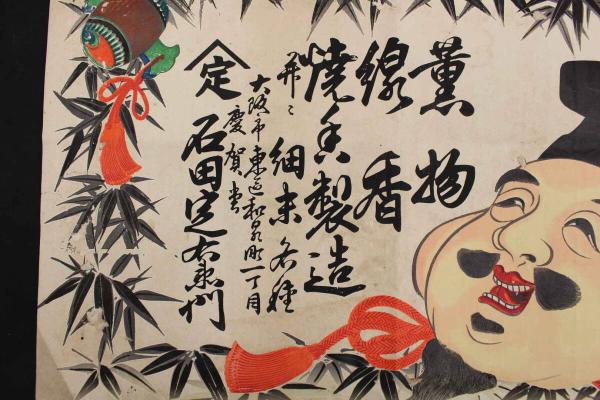 薫物
線香
焼香製造
并ニ 細末各種
大阪市東区和泉町一丁目
慶賀堂
定 石田定右衛門